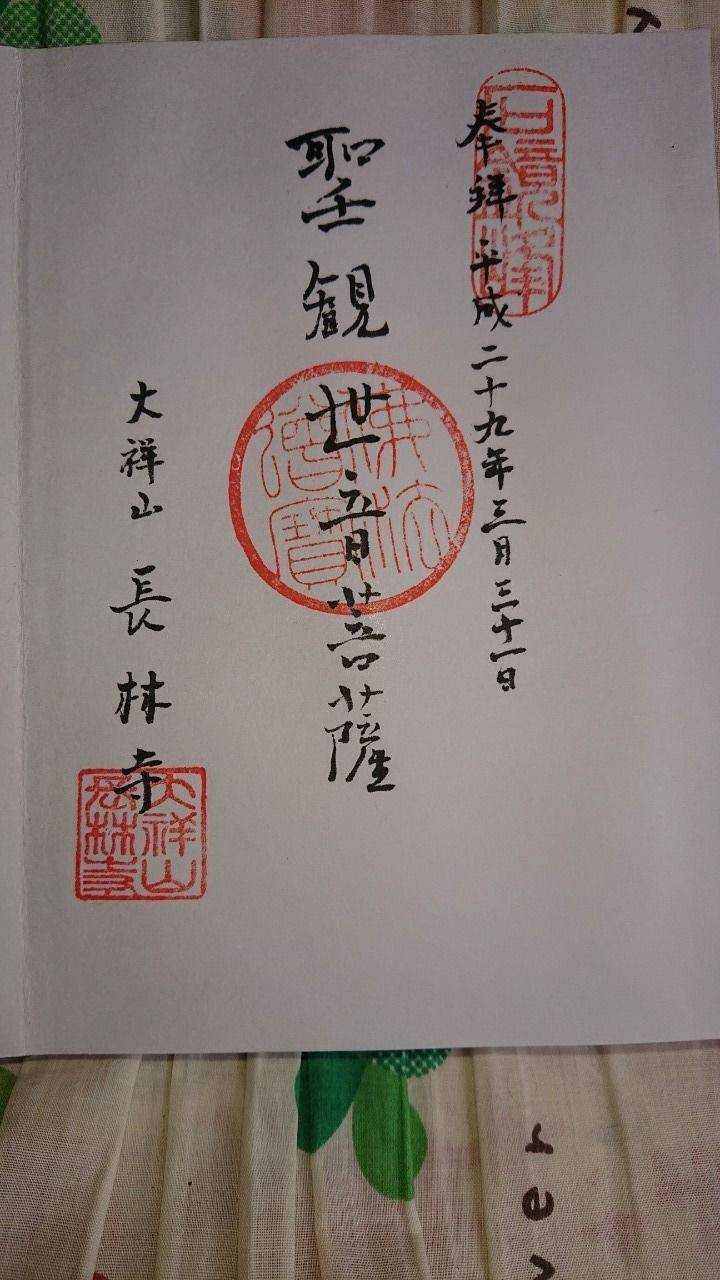 奉拝 平成二十九年三月三十一日
聖観世音菩薩
佛法僧寶
大祥山 長林寺
大祥山長林寺